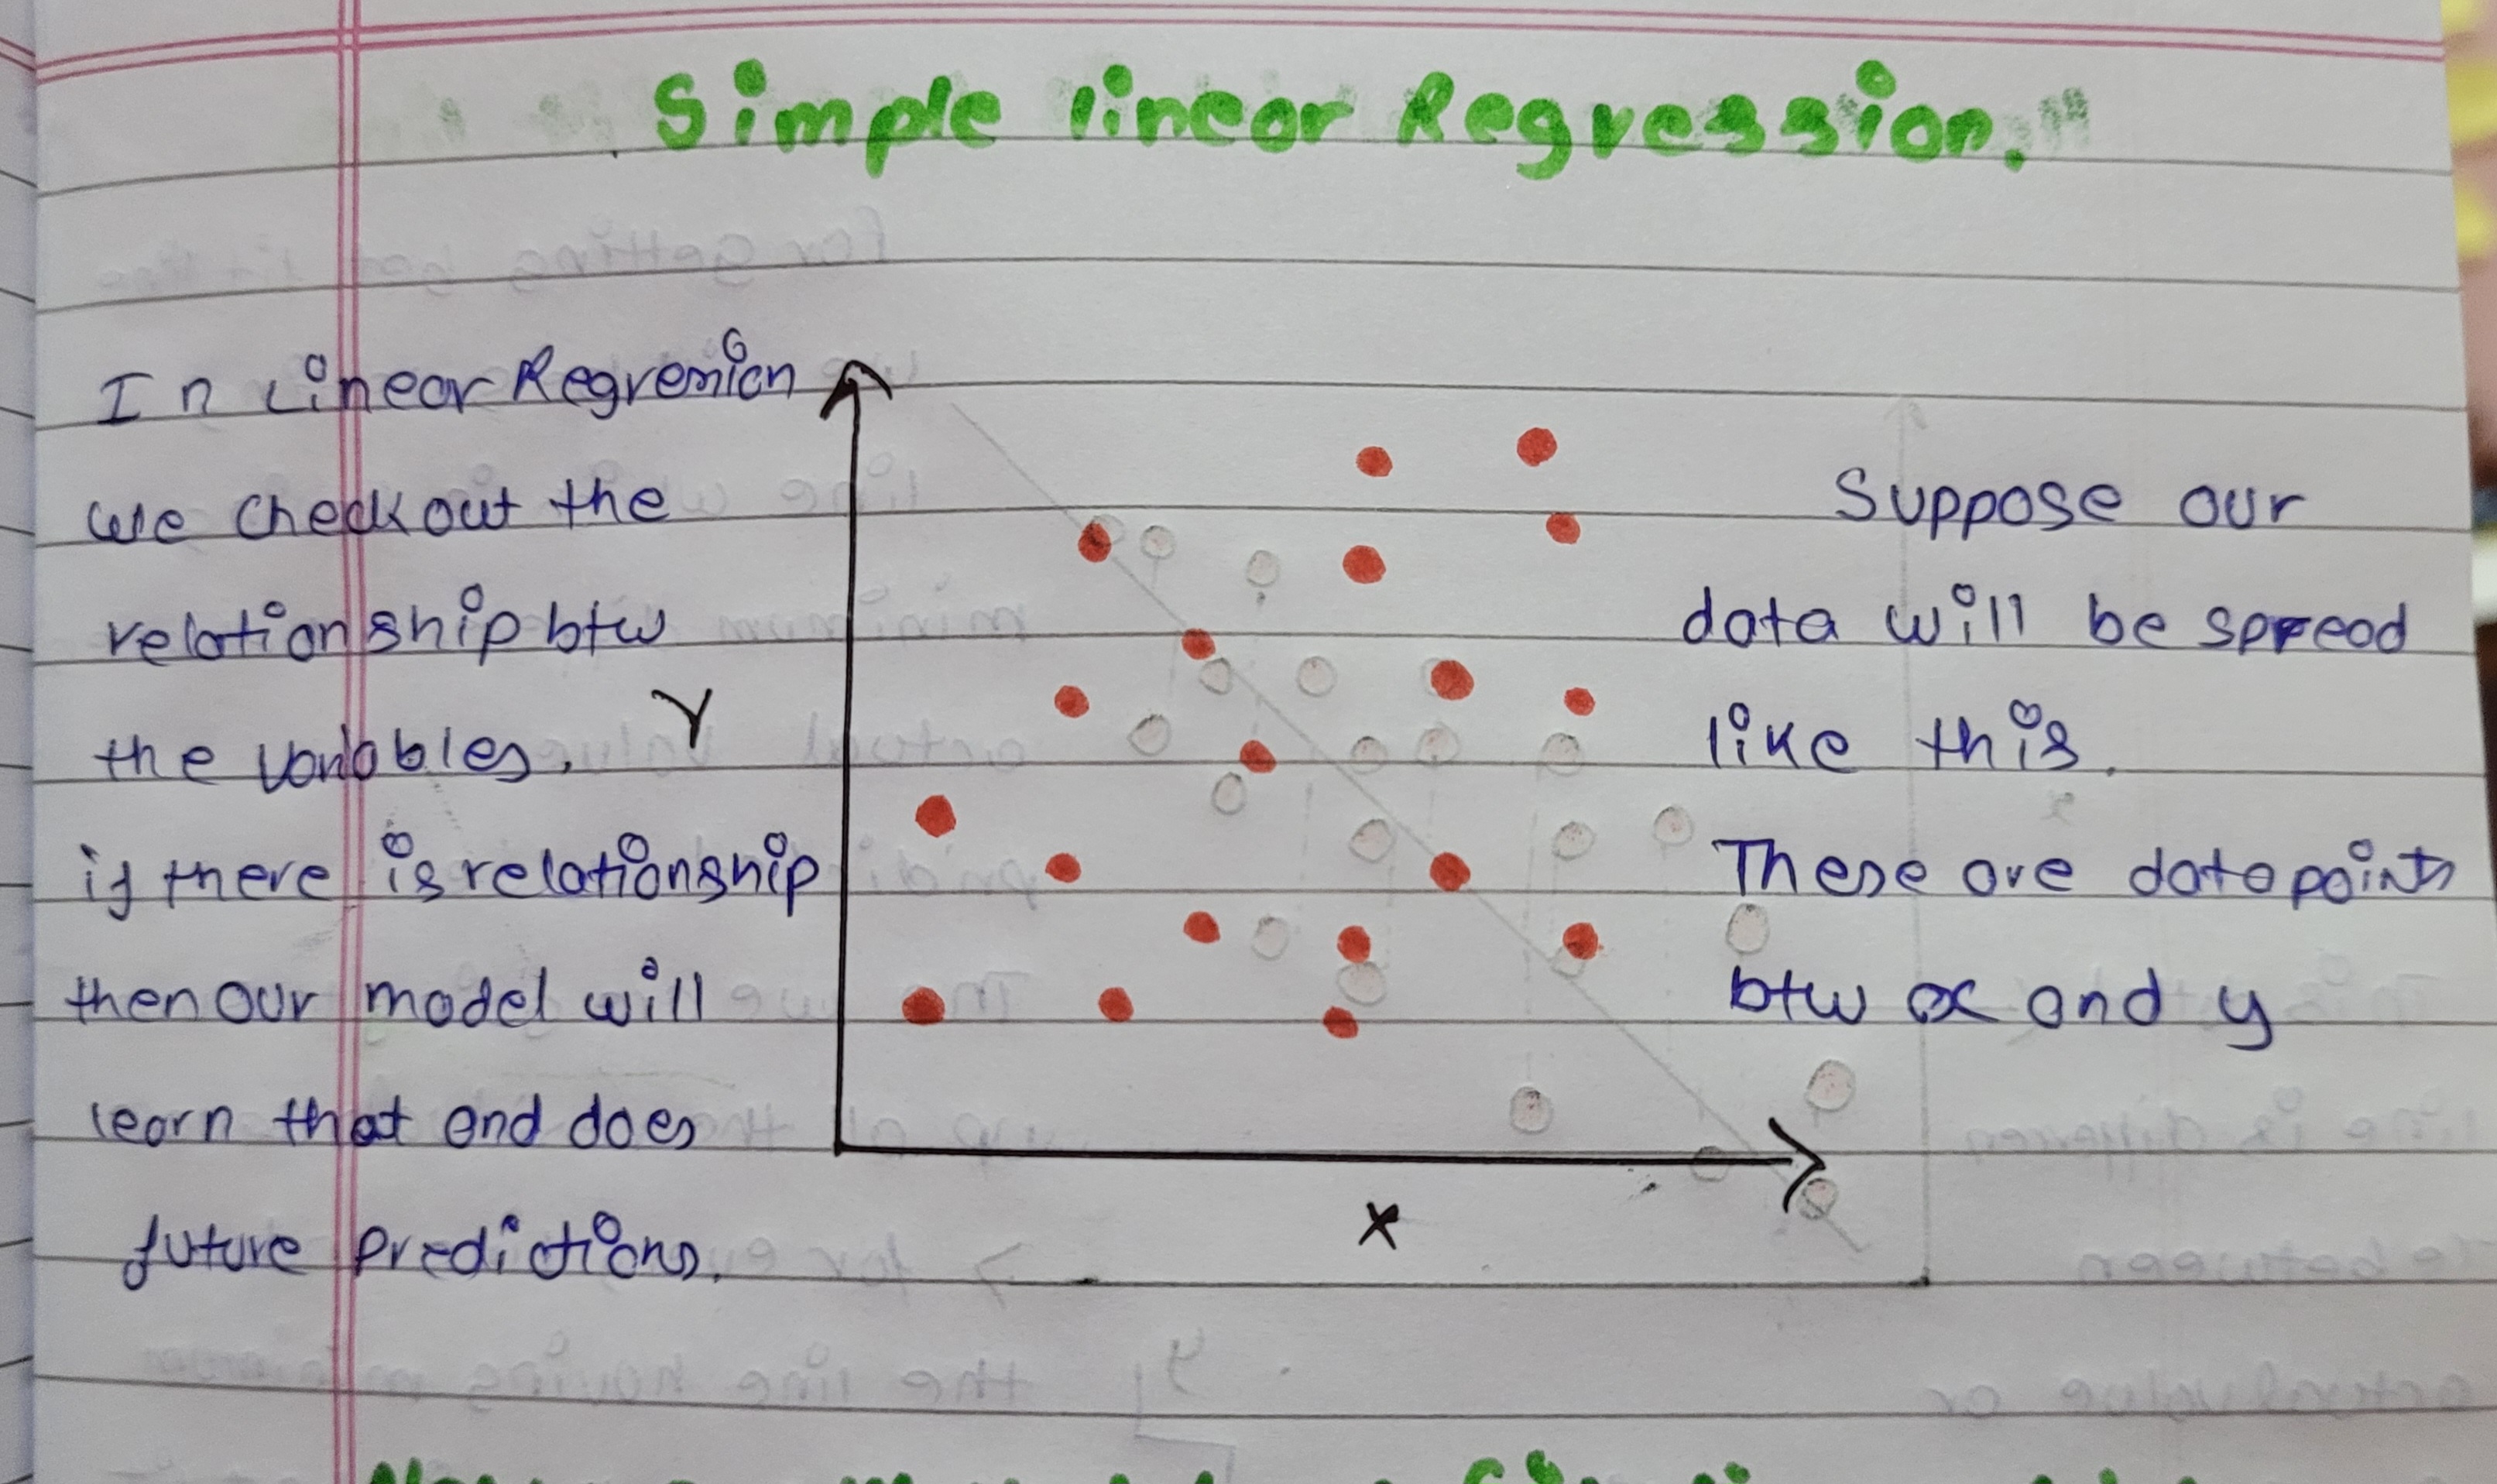 Simple linear Regression.
In Linear Regression
we check out the
relationship btw
the variables.
if there is relationship
then our model will
learn that and does
future predictions.
Y
X
Suppose our
data will be spread
like this.
These are datapoints
btw x and y